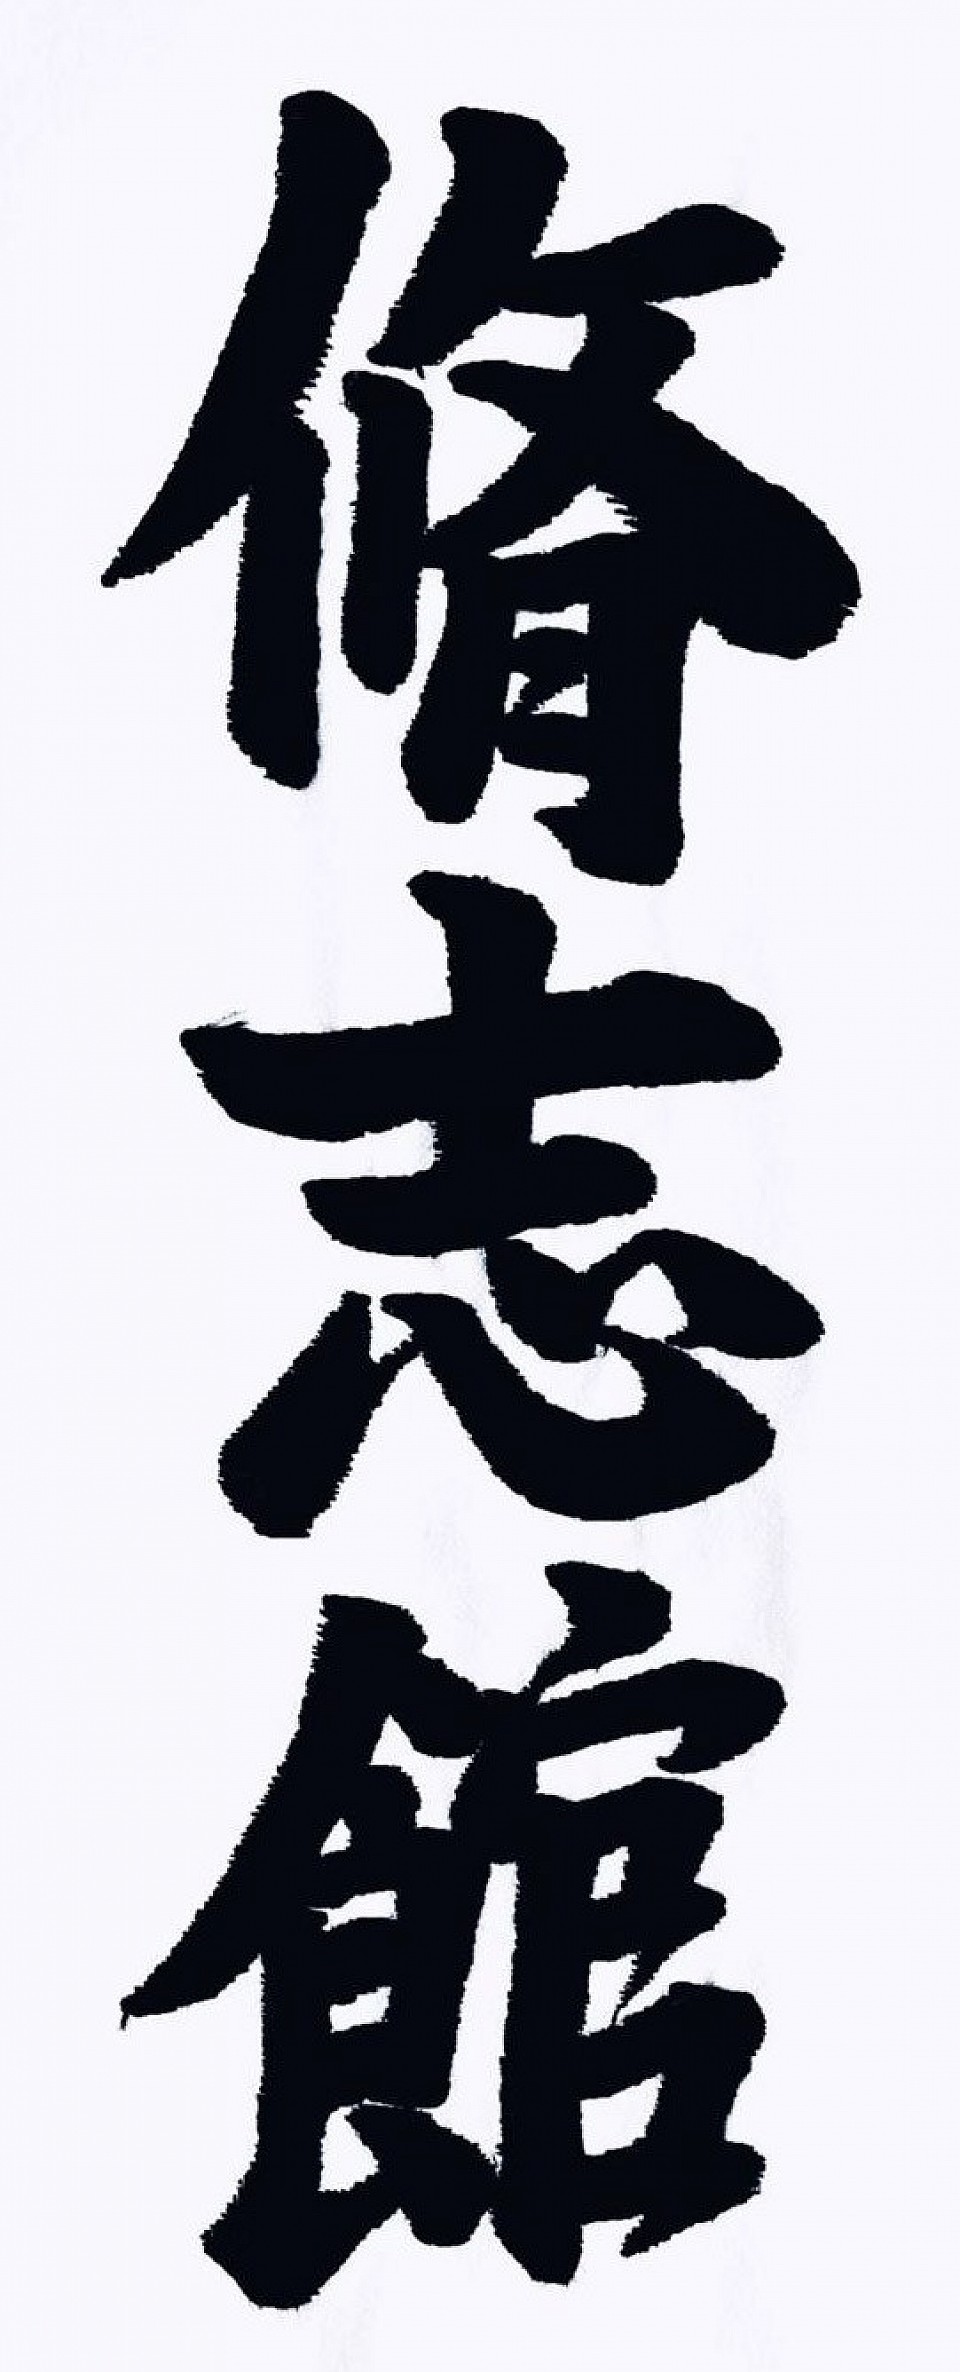 脩志館